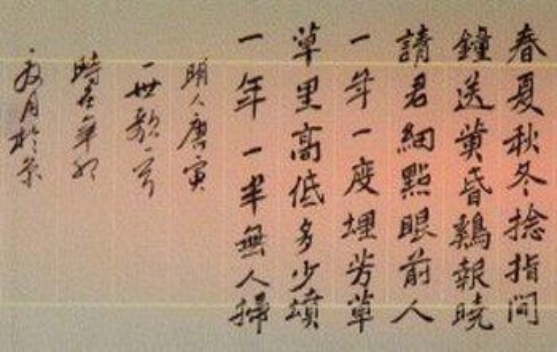 春夏秋冬捻指間
鐘送黄昏鷄報曉
請君細點眼前人
一年一度埋芳草
草里高低多少墳
一年一半無人掃
明人唐寅
一世歌一首
時在
夏月於京